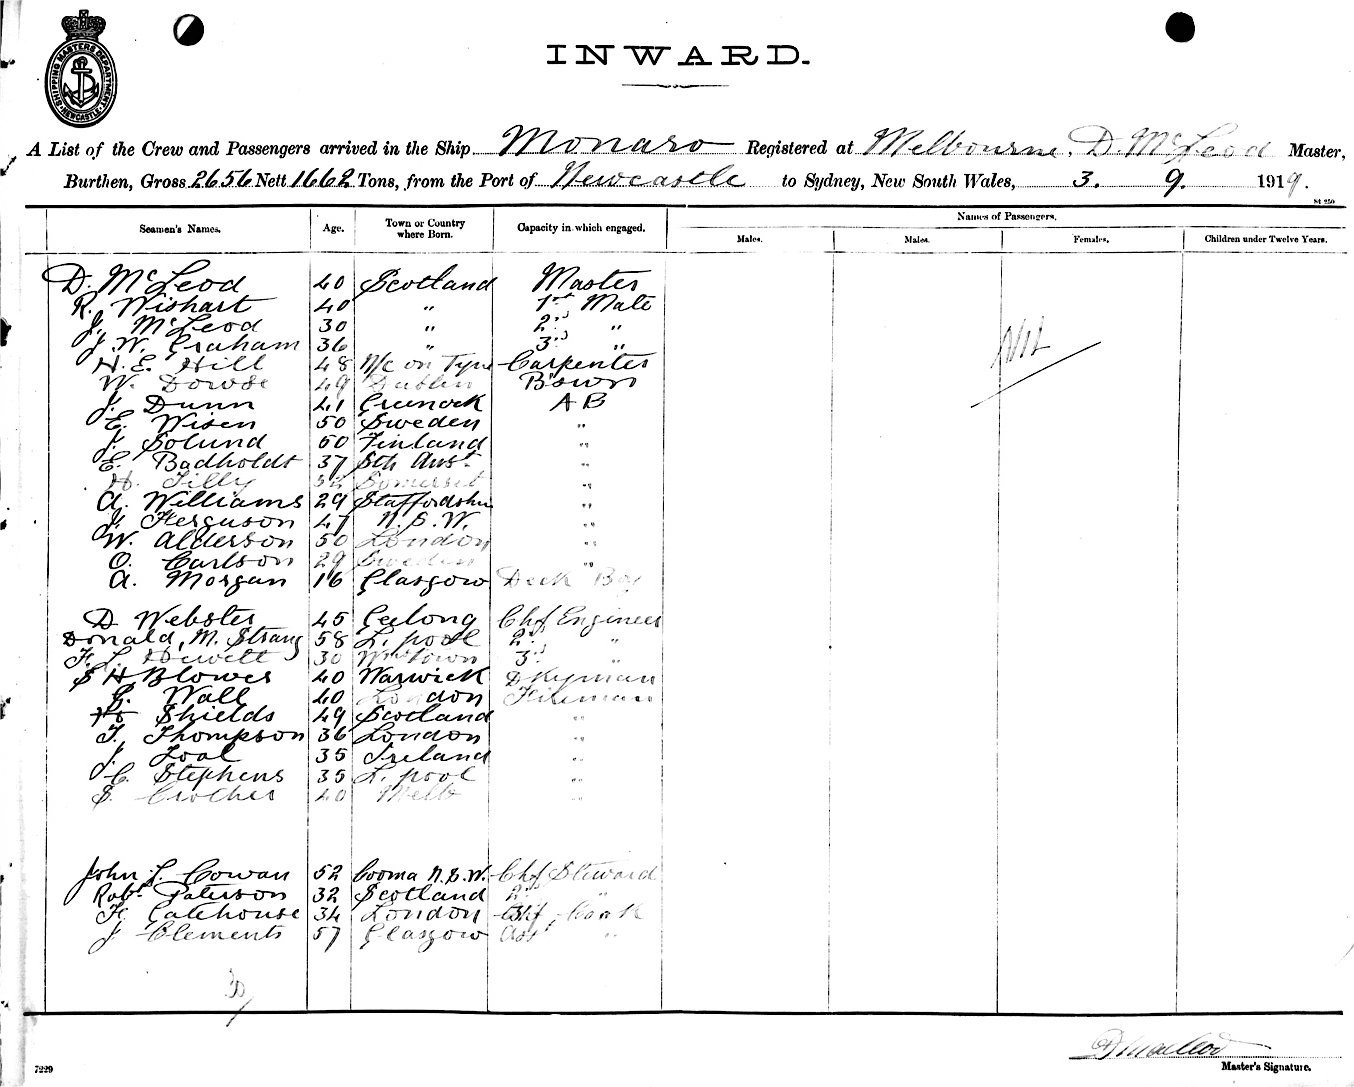 SHIPPING MASTERS DEPARTMENT NEWCASTLE
INWARD.
A List of the Crew and Passengers arrived in the Ship Monaro Registered at Melbourne, D. McLeod Master,
Burthen, Gross 2656 Nett 1662 Tons, from the Port of Newcastle to Sydney, New South Wales, 3. 9. 1919.
St 250
Seamen's Names. Age. Town or Country where Born. Capacity in which engaged. Names of Passengers.
Males. Males. Females. Children under Twelve Years.
D. McLeod 40 Scotland Master
R. Wishart 40 " 1st Mate
J. McLeod 30 " 2nd "
J. W. Graham 36 " 3rd "
Nil
H. E. Hill 48 N/c on Tyne Carpenter
W. Dowse 49 Dublin B'swn
J. Dunn 41 Greenock AB
E. Wisen 50 Sweden "
J. Solund 60 Finland "
E. Badholdt 37 Sth Aust. "
H. Tilly 32 Somerset "
A. Williams 29 Staffordshire "
J. Ferguson 47 N.S.W. "
W. Alderson 50 London "
O. Carlson 29 Sweden "
A. Morgan 16 Glasgow Deck Boy
D Webster 45 Geelong Chf Engineer
Donald, M. Strang 58 L.pool 2nd "
F. L. Hewett 30 3rd "
S H Blower 40 Warwick Dkyman
G. Wall 40 London Fireman
Shields 49 Scotland "
T. Thompson 36 London "
J. 35 Ireland "
C. Stephens 35 L.pool "
S. Crother 40 Melb "
John L. Cowan 52 Cooma N.S.W. Chf Steward
Robt Paterson 32 Scotland 2nd "
F. Gatehouse 34 London Chf Cook
J Clements 57 Glasgow Asst "
30
D Macleod
Master's Signature.
7229